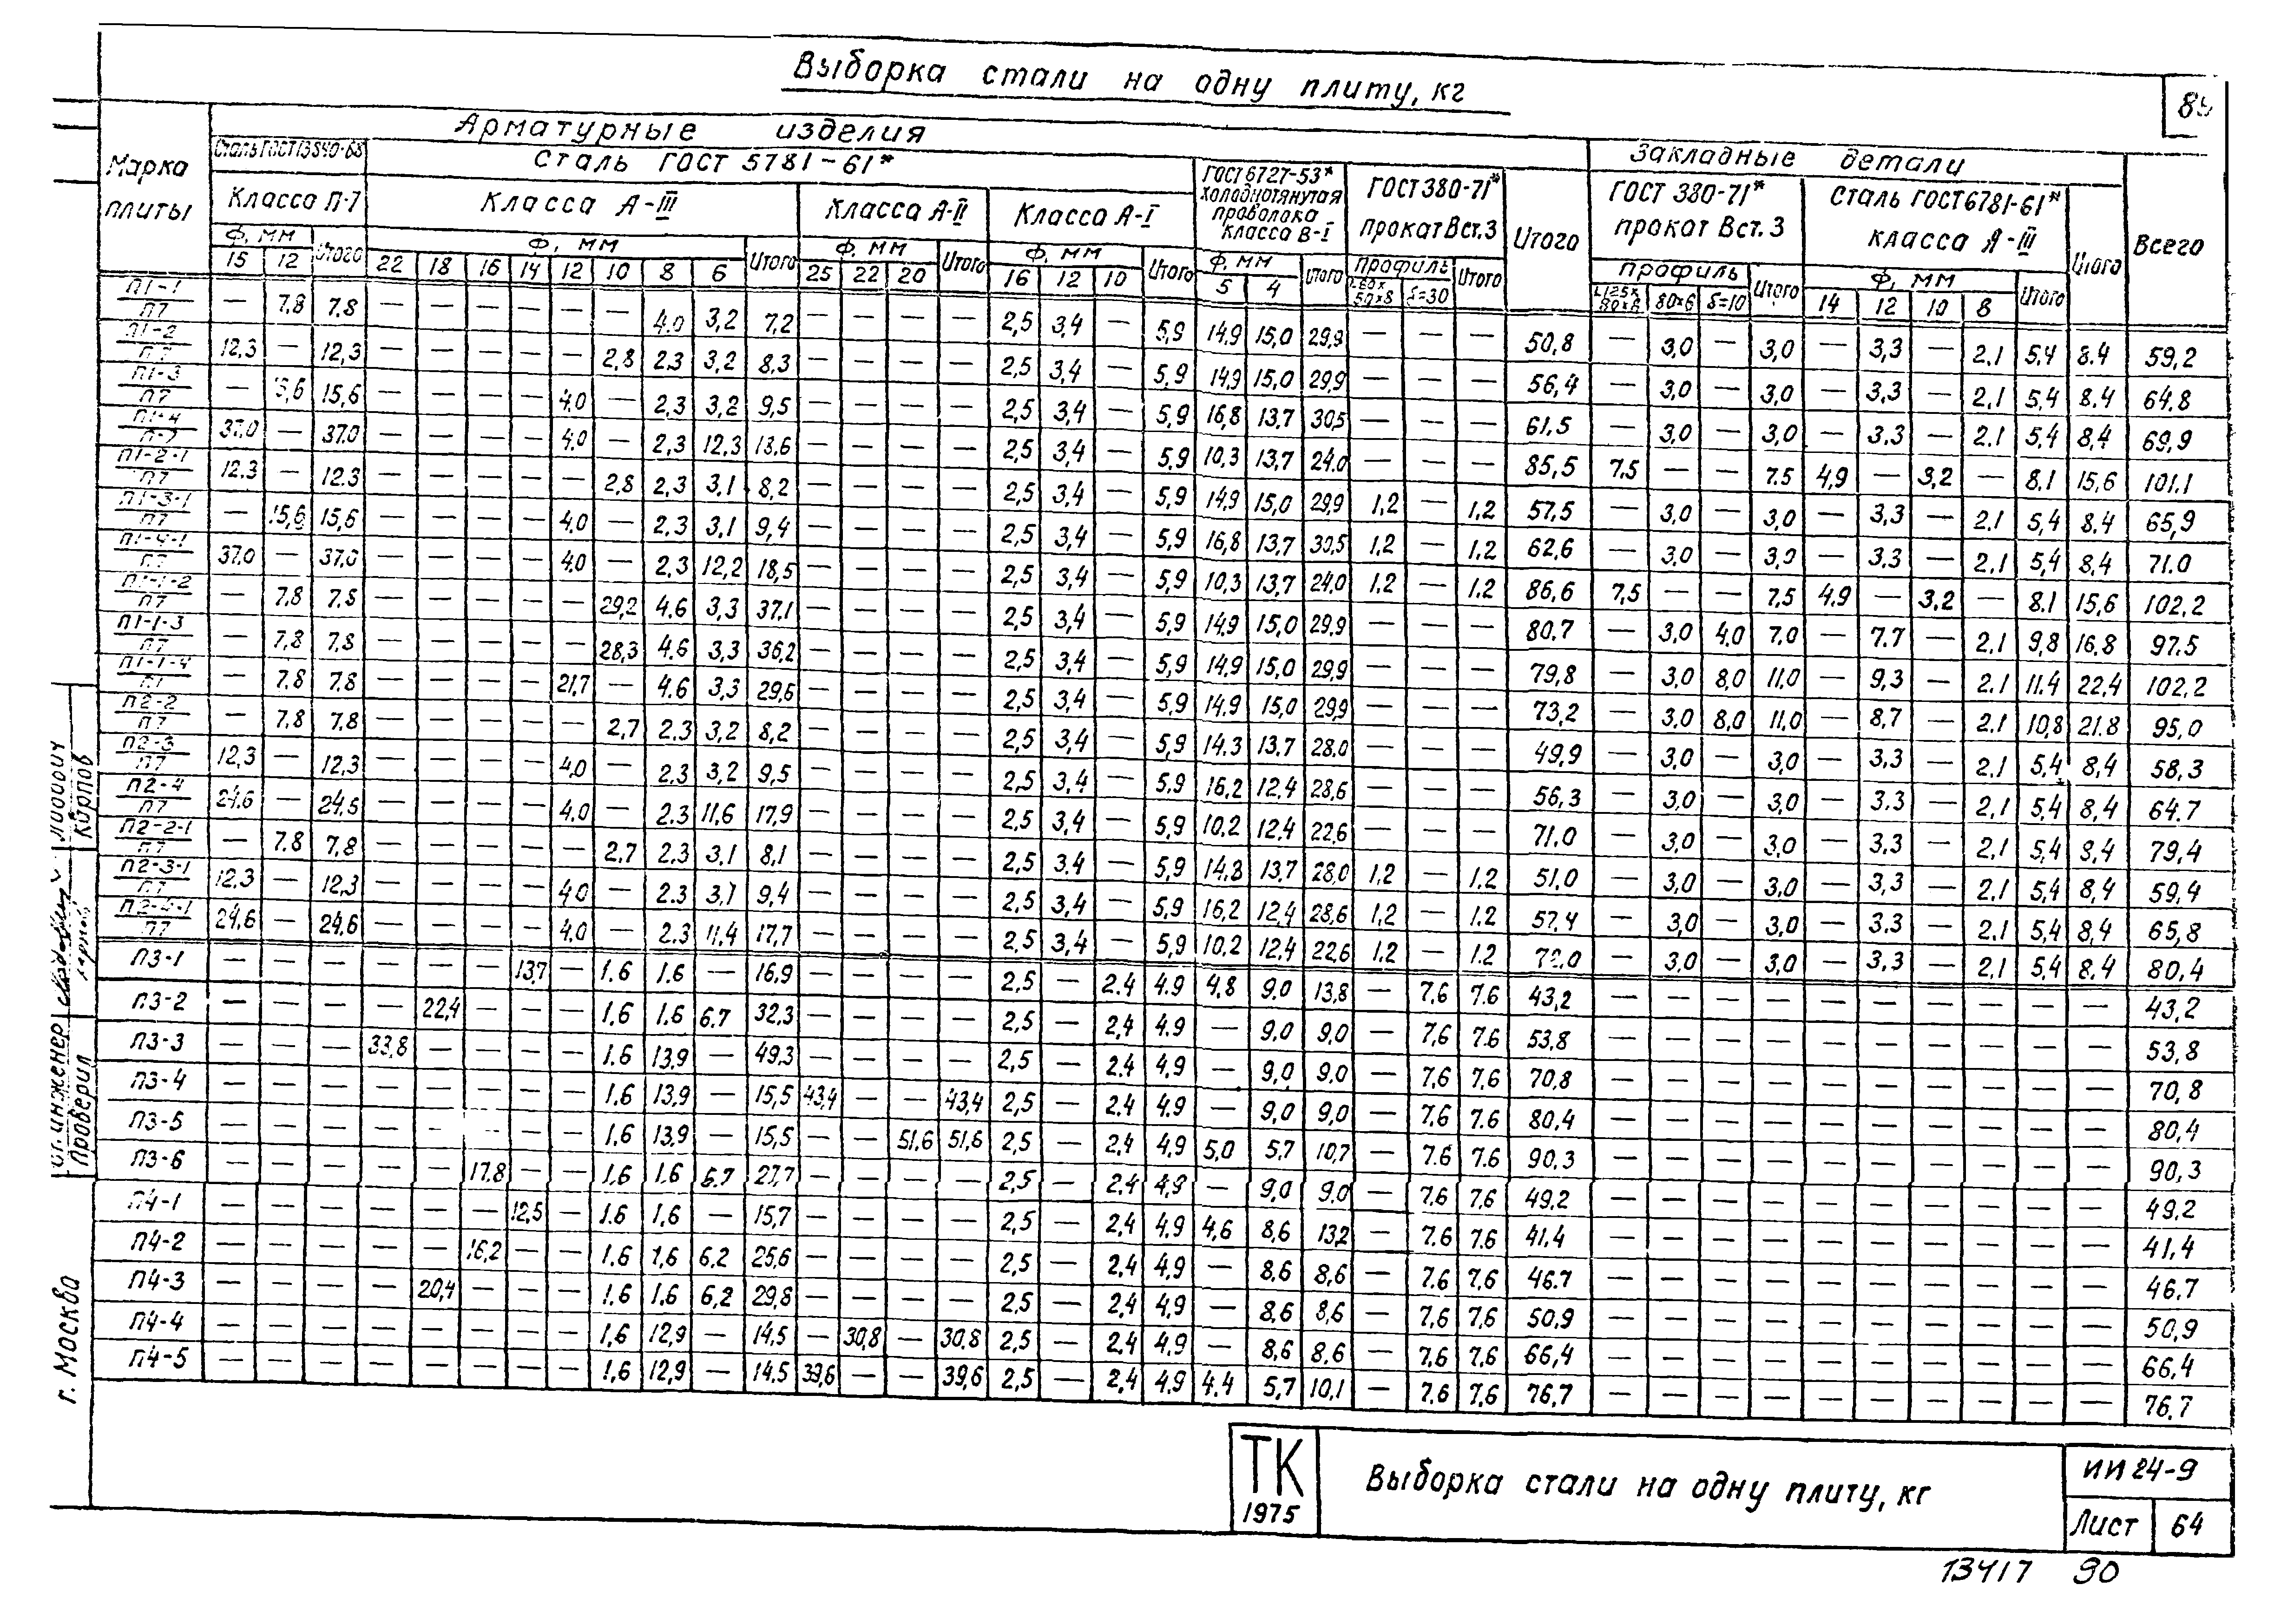 Выборка стали на одну плиту, кг
Марка плиты
Арматурные изделия
Закладные детали
Всего
Сталь ГОСТ 5781-61*
ГОСТ 6727-53* холоднотянутая проволока класса В-I
ГОСТ 380-71* прокат Вст.3
Итого
ГОСТ 380-71* прокат Вст.3
Сталь ГОСТ 6781-61* класса А-III
Итого
Класса П-7
Класса А-III
Класса А-II
Класса А-I
Ф, мм Итого Ф, мм Итого Ф, мм Итого Ф, мм Итого Ф, мм Итого профиль Итого профиль Итого Ф, мм Итого
15 12 22 18 16 14 12 10 8 6 25 22 20 16 12 10 5 4 δ=30 80×6 δ=10 14 12 10 8
П1-1/П7 — 7.8 7.8 — — — — — — 4.0 3,2 7,2 — — — — 2,5 3,4 — 5,9 14,9 15,0 29,9 — — — 50,8 — 3,0 — 3,0 — 3,3 — 2.1 5.4 8.4 59,2
П1-2/П7 12,3 — 12,3 — — — — — 2,8 2.3 3,2 8,3 — — — — 2,5 3,4 — 5,9 14,9 15,0 29,9 — — — 56,4 — 3,0 — 3,0 — 3,3 — 2,1 5,4 8.4 64.8
П1-3/П7 — 15,6 — — — — 4.0 — 2,3 3,2 9,5 — — — — 2,5 3,4 — 5,9 16,8 13,7 30,5 — — — 61,5 — 3,0 — 3,0 — 3.3 — 2.1 5,4 8,4 69,9
П1-4/П-7 37.0 — 37.0 — — — — 4.0 — 2,3 12,3 — — — — 2,5 3,4 — 5.9 10,3 13,7 24.0 — — — 85,5 7.5 — — 7.5 4,9 — 3,2 — 8.1 15,6 101.1
П1-2-1/П7 12.3 — 12.3 — — — — — 2,8 2,3 3,1 8,2 — — — — 2,5 3,4 — 5,9 14,9 15,0 29,9 1,2 — 1,2 57,5 — 3,0 — 3,0 — 3,3 — 2.1 5,4 8.4 65,9
П1-3-1/П7 — 15,6 15,6 — — — — 4.0 — 2,3 3,1 9,4 — — — — 2,5 3,4 — 5,9 16,8 13,7 30,5 1,2 — 1.2 62,6 — 3,0 — 3,0 — 3,3 — 2.1 5,4 8,4 71.0
П1-4-1/П7 37,0 — 37,0 — — — — 4.0 — 2,3 12,2 18,5 — — — — 2,5 3,4 — 5,9 10,3 13,7 24,0 1,2 — 1,2 86,6 7,5 — — 7,5 4,9 — 3,2 — 8.1 15,6 102,2
П1-1-2/П7 — 7,8 7.8 — — — — — 29,2 4.6 3,3 37,1 — — — — 2,5 3,4 — 5,9 14,9 15,0 29,9 — — — 80,7 — 3,0 4,0 7,0 — 7.7 — 2.1 9,8 16.8 97.5
П1-1-3/П7 — 7,8 7,8 — — — — — 28,3 4.6 3,3 36,2 — — — — 2,5 3,4 — 5,9 14,9 15,0 29,9 — — — 79,8 — 3,0 8,0 11,0 — 9,3 — 2.1 11.4 22,4 102,2
П1-1-4 — 7.8 7.8 — — — — 21,7 — 4.6 3,3 29,6 — — — — 2,5 3,4 — 5,9 14.9 15,0 29,9 — — — 73,2 — 3,0 8,0 11,0 — 8,7 — 2.1 10,8 21.8 95,0
П2-2/П7 — 7,8 7,8 — — — — — 2,7 2.3 3,2 8,2 — — — — 2,5 3,4 — 5,9 14.3 13.7 28,0 — — — 49,9 — 3,0 — 3,0 — 3.3 — 2,1 5,4 8,4 58,3
П2-3/П7 12,3 — 12,3 — — — — 4,0 — 2,3 3,2 9,5 — — — — 2,5 3,4 — 5,9 16,2 12,4 28,6 — — — 56,3 — 3,0 — 3,0 — 3.3 — 2,1 5,4 8,4 64.7
П2-4/П7 24,6 — 24,5 — — — — 4.0 — 2.3 11,6 17,9 — — — — 2,5 3,4 — 5,9 10,2 12,4 22,6 — — — 71.0 — 3,0 — 3,0 — 3.3 — 2,1 5,4 8,4 79,4
П2-2-1/П7 — 7.8 7,8 — — — — — 2.7 2,3 3,1 8,1 — — — — 2,5 3,4 — 5,9 14,3 13.7 28,0 1,2 — 1.2 51,0 — 3,0 — 3,0 — 3,3 — 2.1 5,4 8,4 59,4
П2-3-1/П7 12,3 — 12,3 — — — — 4.0 — 2.3 3,1 9,4 — — — — 2,5 3,4 — 5,9 16,2 12,4 28,6 1,2 — 1.2 57,4 — 3,0 — 3,0 — 3.3 — 2.1 5,4 8,4 65,8
П2-4-1/П7 24,6 — 24,6 — — — — 4.0 — 2.3 11,4 17,7 — — — — 2,5 3,4 — 5,9 10,2 12,4 22,6 1,2 — 1.2 — 3,0 — 3,0 — 3,3 — 2,1 5,4 8,4 80,4
П3-1 — — — — — — 13,7 — 1.6 1.6 — 16,9 — — — — 2,5 — 2.4 4.9 4,8 9.0 13,8 — 7.6 7.6 43,2 — — — — — — — — — — 43,2
П3-2 — — — — 22,4 — — — 1,6 1.6 6.7 32,3 — — — — 2,5 — 2,4 4.9 — 9,0 9,0 — 7,6 7.6 53,8 — — — — — — — — — — 53,8
П3-3 — — — 33,8 — — — — 1.6 13,9 — 49,3 — — — — 2,5 — 2.4 4,9 — 9,0 9,0 — 7,6 7,6 70,8 — — — — — — — — — — 70,8
П3-4 — — — — — — — — 1.6 13,9 — 15,5 43,4 — — 43,4 2,5 — 2.4 4.9 — 9,0 9,0 — 7.6 7.6 80,4 — — — — — — — — — — 80,4
П3-5 — — — — — — — — 1,6 13,9 — 15,5 — — 51,6 51,6 2,5 — 2,4 4,9 5,0 5,7 10,7 — 7.6 7.6 90.3 — — — — — — — — — — 90,3
П3-6 — — — — — 17.8 — — 1,6 1.6 6.7 27,7 — — — — 2,5 — 2.4 4,9 — 9.0 9.0 — 7.6 7,6 49,2 — — — — — — — — — — 49,2
П4-1 — — — — — — 12,5 — 1.6 1,6 — 15,7 — — — — 2,5 — 2,4 4,9 4,6 8,6 13,2 — 7.6 7.6 41.4 — — — — — — — — — — 41,4
П4-2 — — — — — 16,2 — — 1.6 1,6 6,2 25,6 — — — — 2,5 — 2,4 4,9 — 8,6 8,6 — 7.6 7,6 46.7 — — — — — — — — — — 46.7
П4-3 — — — — 20,4 — — — 1,6 1.6 6,2 29,8 — — — — 2,5 — 2,4 4,9 — 8,6 8,6 — 7.6 7,6 50,9 — — — — — — — — — — 50,9
П4-4 — — — — — — — — 1,6 12,9 — 14,5 — 30,8 — 30,8 2,5 — 2,4 4,9 — 8,6 8.6 — 7.6 7,6 66,4 — — — — — — — — — — 66,4
П4-5 — — — — — — — — 1,6 12,9 — 14.5 39,6 — — 39,6 2,5 — 2,4 4,9 4.4 5,7 10,1 — 7.6 7,6 76,7 — — — — — — — — — — 76.7
ст. инженер
Проверил Карпов
г. Москва
ТК
1975
Выборка стали на одну плиту, кг
ИИ 24-9
Лист 64
13417 90